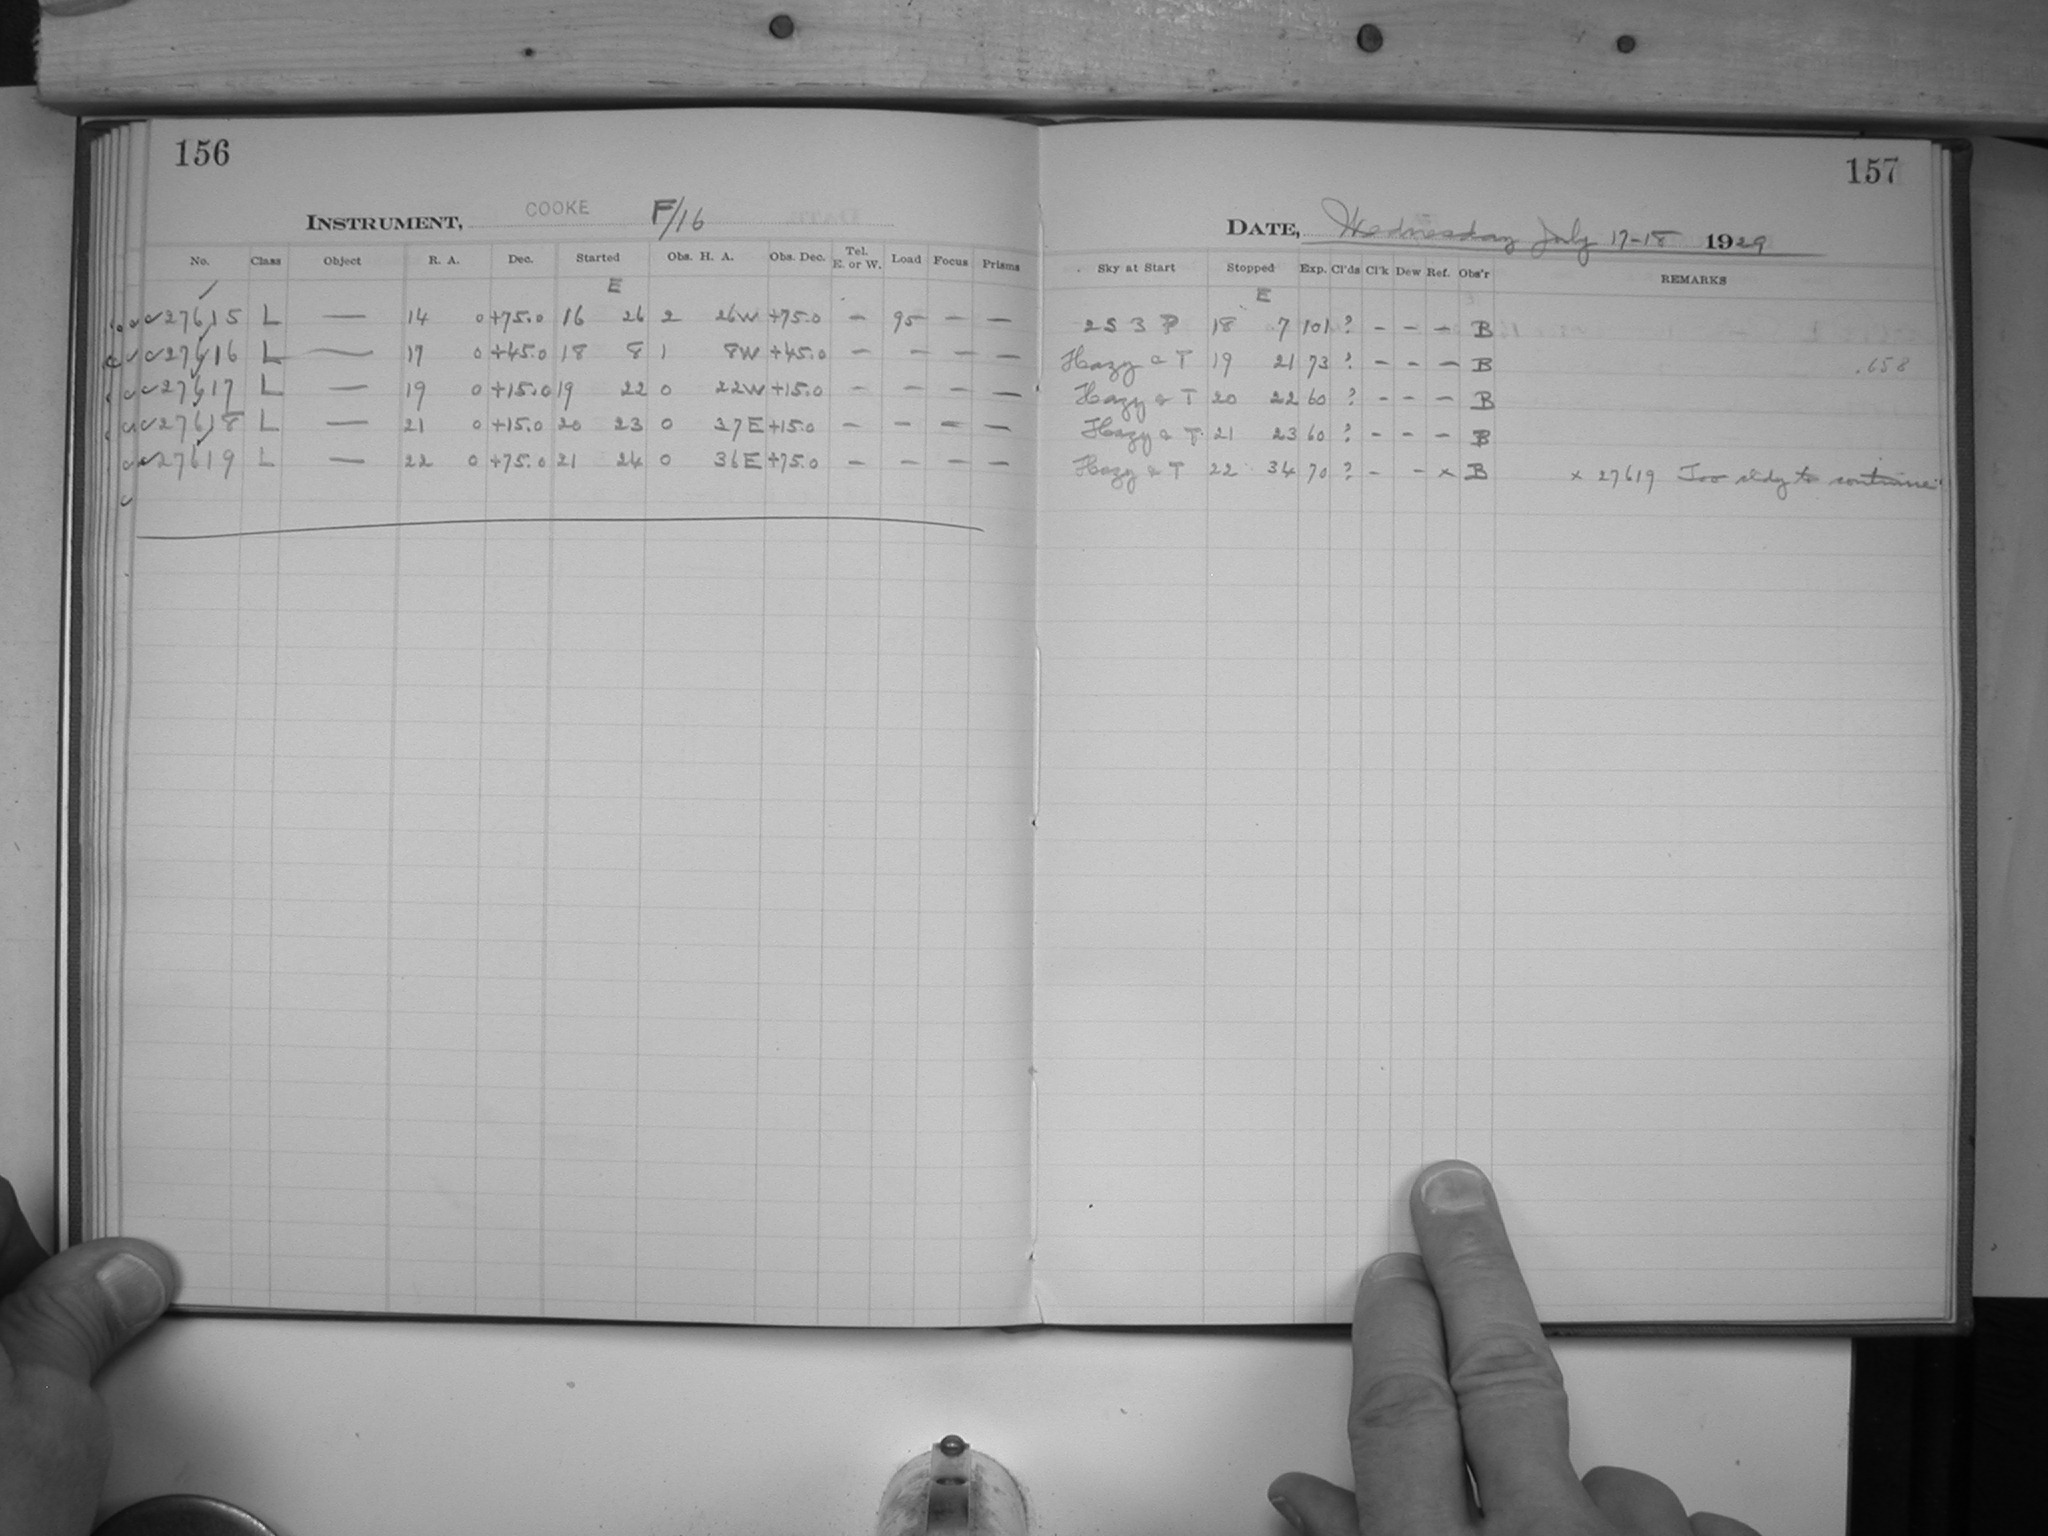 156
INSTRUMENT, COOKE F/16
No. Class Object R. A. Dec. Started Obs. H. A. Obs. Dec. Tel. E. or W. Load Focus Prisms
E
27615 L — 14 0 +75.0 16 26 2 26W +75.0 — 95 — —
27616 L — 17 0 +45.0 18 8 1 8W +45.0 — — — —
27617 L — 19 0 +15.0 19 22 0 22W +15.0 — — — —
27618 L — 21 0 +15.0 20 23 0 37E +15.0 — — — —
27619 L — 22 0 +75.0 21 24 0 36E +75.0 — — — —
157
DATE, Wednesday July 17-18 1929
Sky at Start Stopped Exp. Cl'ds Cl'k Dew Ref. Obs'r REMARKS
E
2S 3 P 18 7 101 ? – – – B
Hazy & T 19 21 73 ? – – – B .658
Hazy & T 20 22 60 ? – – – B
Hazy & T 21 23 60 ? – – – B
Hazy & T 22 34 70 ? – – x B x 27619 Too to continue